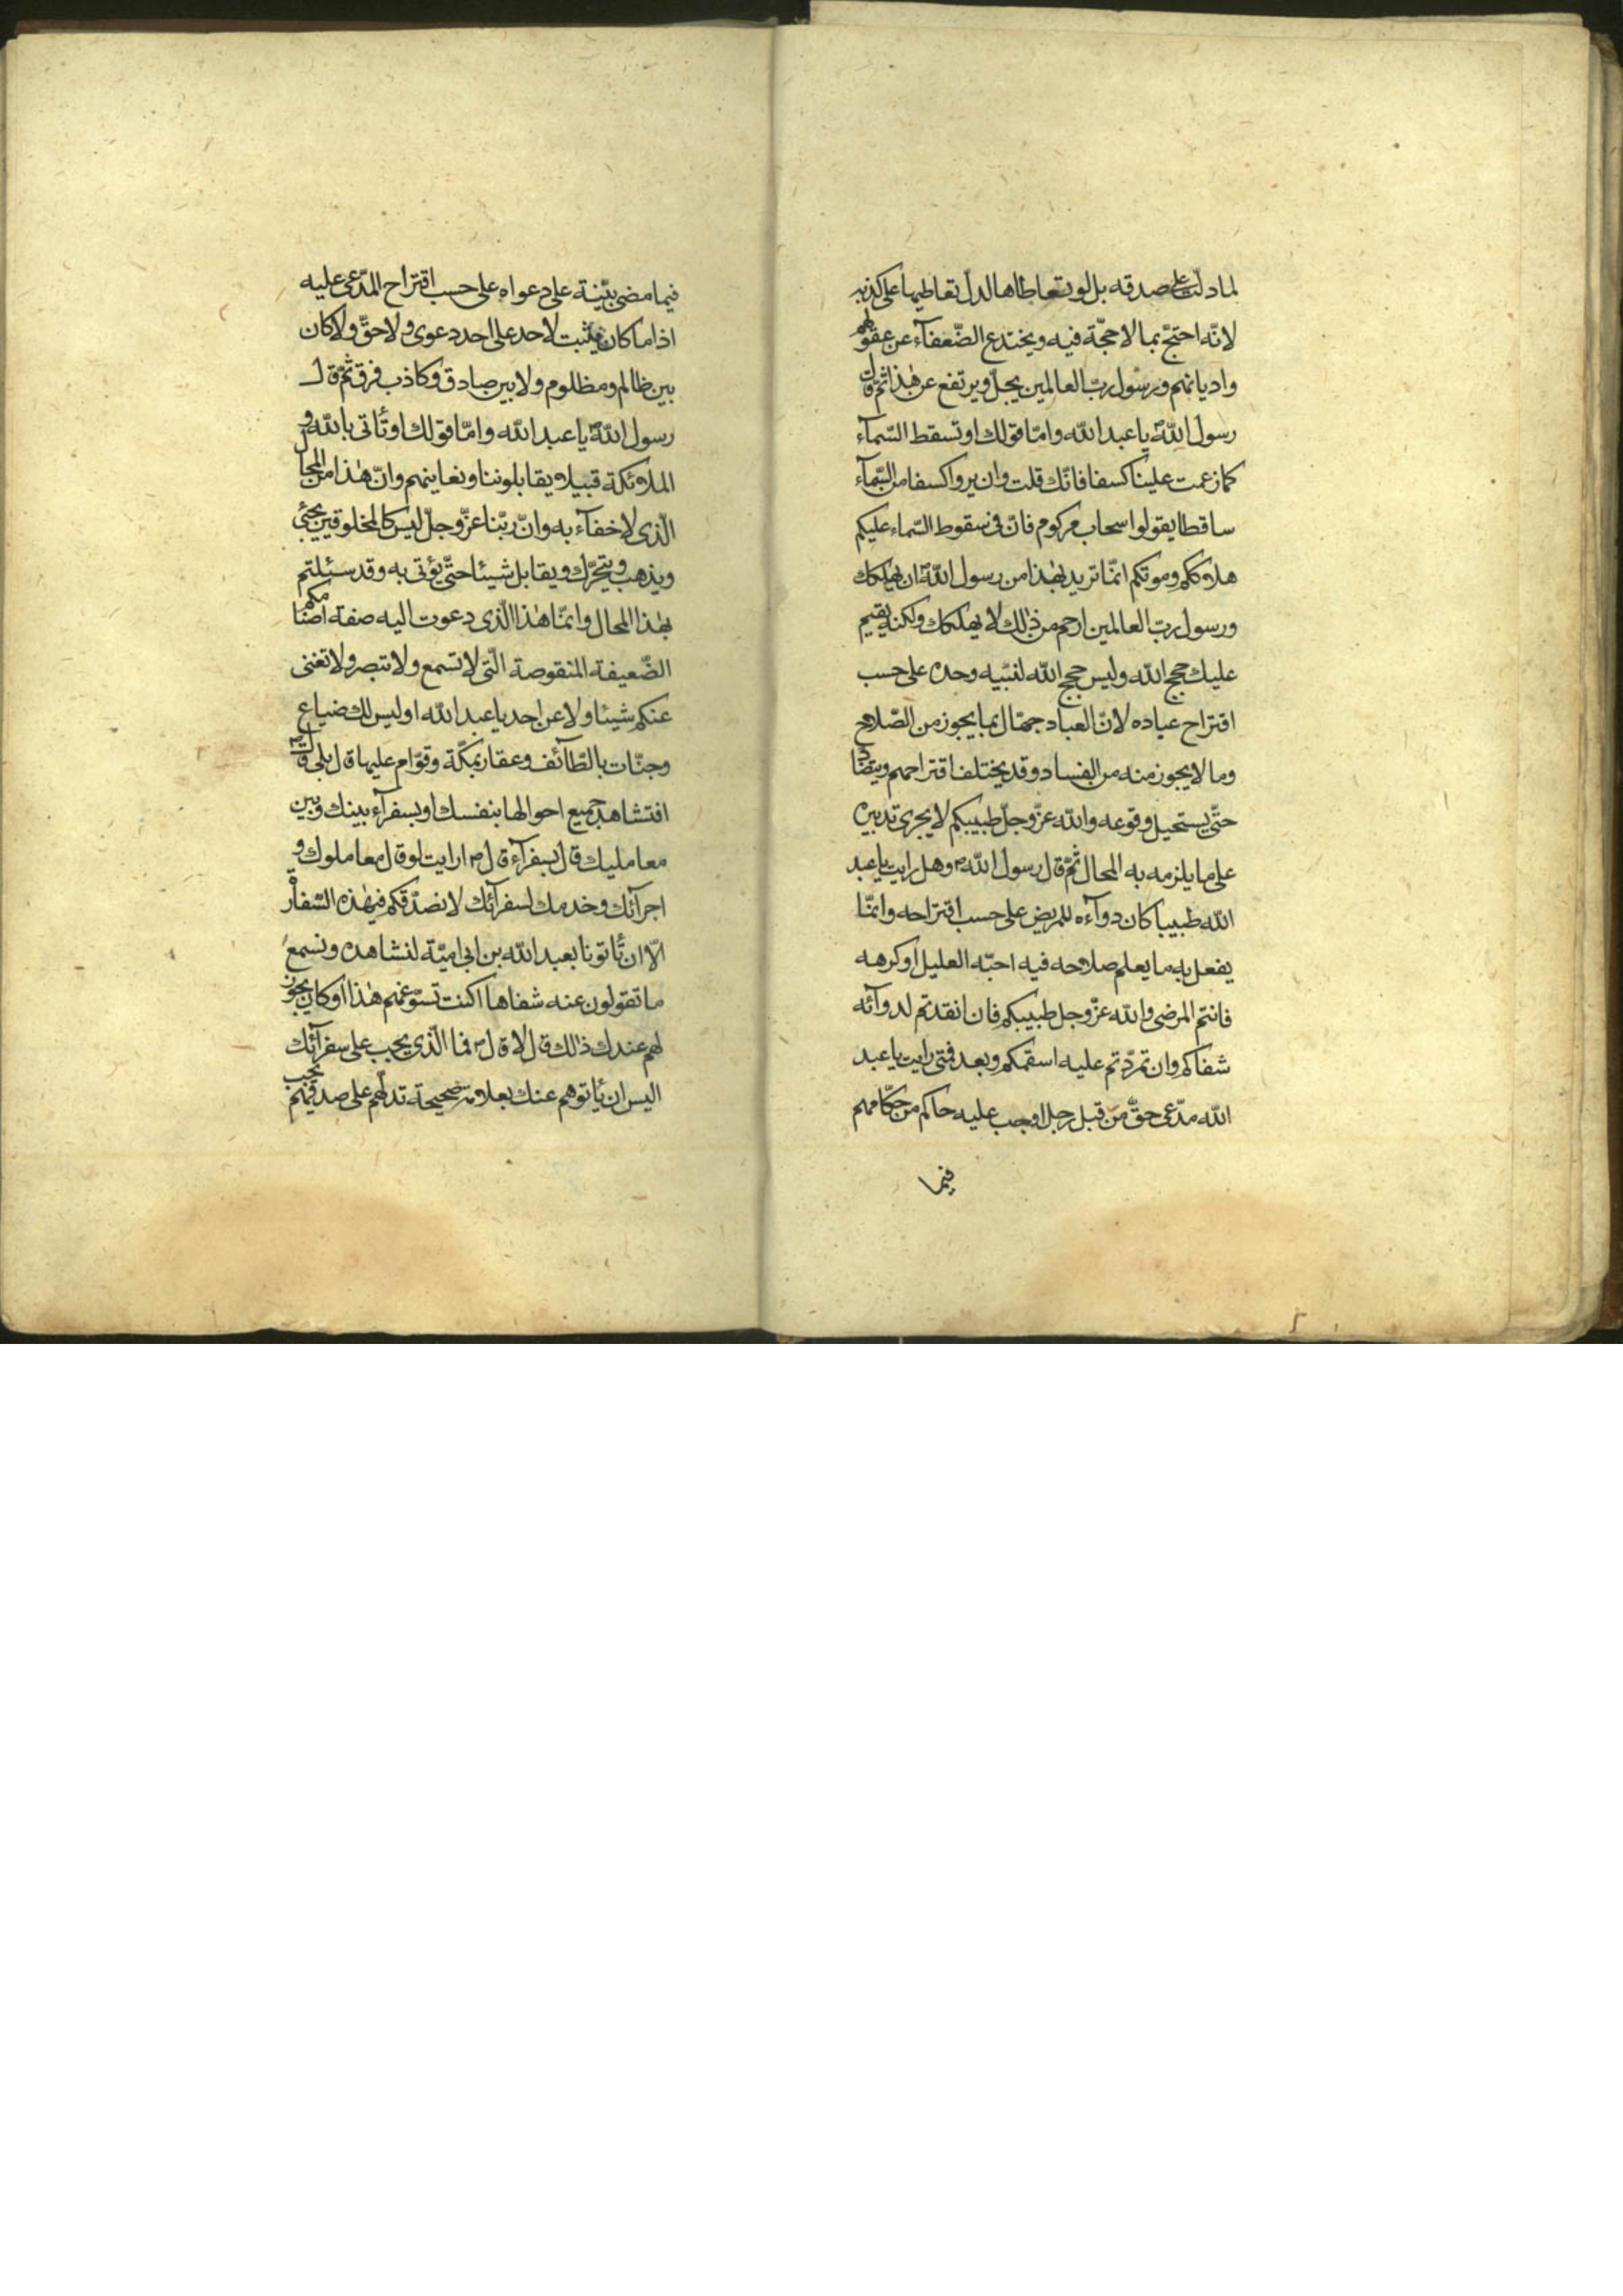 لما دلّت على صدقه بل لو تعاطاها لدلّ تعاطيها على كذبه
لانّه احتجّ بما لا حجّة فيه ويختدع الضّعفآء عن عقولهم
واديانهم ورسول ربّ العالمين يجلّ ويرتفع عن هٰذا ثمّ قال
رسول اللّه يا عبد اللّه وامّا قولك او تسقط السّمآء
كما زعمت علينا كسفا فانّك قلت وان يروا كسفا من السّمآء
ساقطا يقولوا سحاب مركوم فانّ فى سقوط السّماء عليكم
هلاككم وموتكم انمّا تريد بهٰذا من رسول اللّه ان يهلكك
ورسول ربّ العالمين ارحم من ذٰلك لا يهلكك ولكنه يقيم
عليك حجج اللّه وليس حجج اللّه لنبّيه وحده على حسب
اقتراح عباده لانّ العباد جهّال بما يجوز من الصّلاح
وما لا يجوز منه من الفساد وقد يختلف اقتراحهم ويتضادّ
حتّى يستحيل وقوعه واللّه عزّ وجلّ طبيبكم لا يجرى تدبيره
على ما يلزمه به المحال ثمّ قال رسول اللّه ص وهل رايت يا عبد
اللّه طبيبا كان دوآءه للمريض على حسب اقتراحه وانمّا
يفعل به ما يعلم صلاحه فيه احبّه العليل او كرهه
فانتم المرضى واللّه عزّ وجل طبيبكم فان انقدتم لدوآئه
شفاكم وان تمرّدتم عليه اسقمكم وبعد فمتى رايت يا عبد
اللّه مدّعى حقّ من قبل رجل اوجب عليه حاكم من حكّامهم
فيما
فيما مضى بيّنة على دعواه على حسب اقتراح المدّعى عليه
اذا ما كان يثبت لاحد على احد دعوى ولا حقّ ولا كان
بين ظالم ومظلوم ولا بين صادق وكاذب فرق ثمّ قال
رسول اللّه يا عبد اللّه وامّا قولك او تأتى باللّه و
الملائكة قبيلا يقابلوننا ونعاينهم وانّ هٰذا من المحال
الّذى لا خفآء به وانّ ربّنا عزّ وجلّ ليس كالمخلوقين يجئى
ويذهب ويتحرّك ويقابل شيئا حتّى يؤتى به وقد سئلتم
بهٰذا المحال وانمّا هٰذا الّذى دعوت اليه صفة اصنامكم
الضّعيفة المنقوصة الّتى لا تسمع ولا تبصر ولا تغنى
عنكم شيئا ولا عن احد يا عبد اللّه اوليس لك ضياع
وجنّات بالطّآئف وعقار بمكّة وقوّام عليها قال بلى قال ص
افتشاهد جميع احوالها بنفسك او بسفرآء بينك وبين
معامليك قال بسفرآء قال ص ارايت لو قال معاملوك و
اجرآئك وخدمك لسفرآئك لا نصدّقكم فى هٰذه السّفارة
الّا ان تأتونا بعبد اللّه بن ابى اميّة لنشاهده ونسمع
ما تقولون عنه شفاها اكنت تسوّغهم هٰذا او كان يجوز
لهم عندك ذالك قال لا قال ص فما الّذى يجب على سفرآئك
اليس ان يأتوهم عنك بعلامة صحيحة تدلّهم على صدقهم يجب